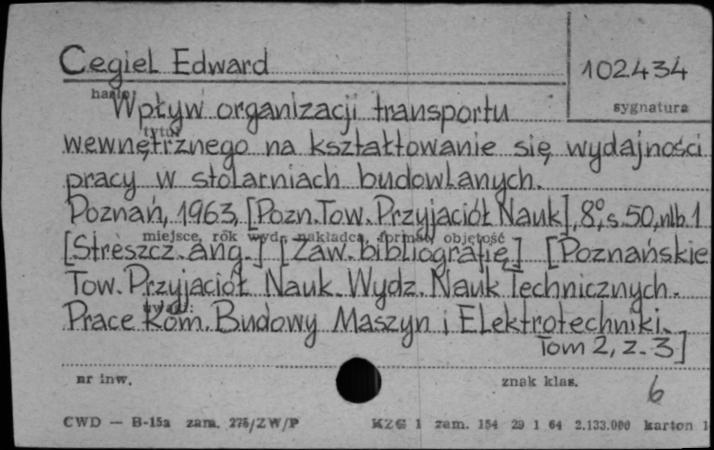 Cegiel Edward
102434
hasło
sygnatura
Wpływ organizacji transportu
tytuł
wewnętrznego na kształtowanie się wydajności
pracy w stolarniach budowlanych.
Poznań, 1963, [Pozn. Tow. Przyjaciół Nauk], 8°, s. 50, nlb. 1
miejsce, rok wyd., nakładca, format, objętość
[Streszcz. ang.] [Zaw. bibliografię] [Poznańskie
Tow. Przyjaciół Nauk. Wydz. Nauk Technicznych.
Prace Kom. Budowy Maszyn i Elektrotechniki.
Tom 2, z. 3]
nr inw.
znak klas.
6
CWD — B-15a zam. 275/ZW/P
KZG 1 zam. 154 29 1 64 2.133.000 karton 1